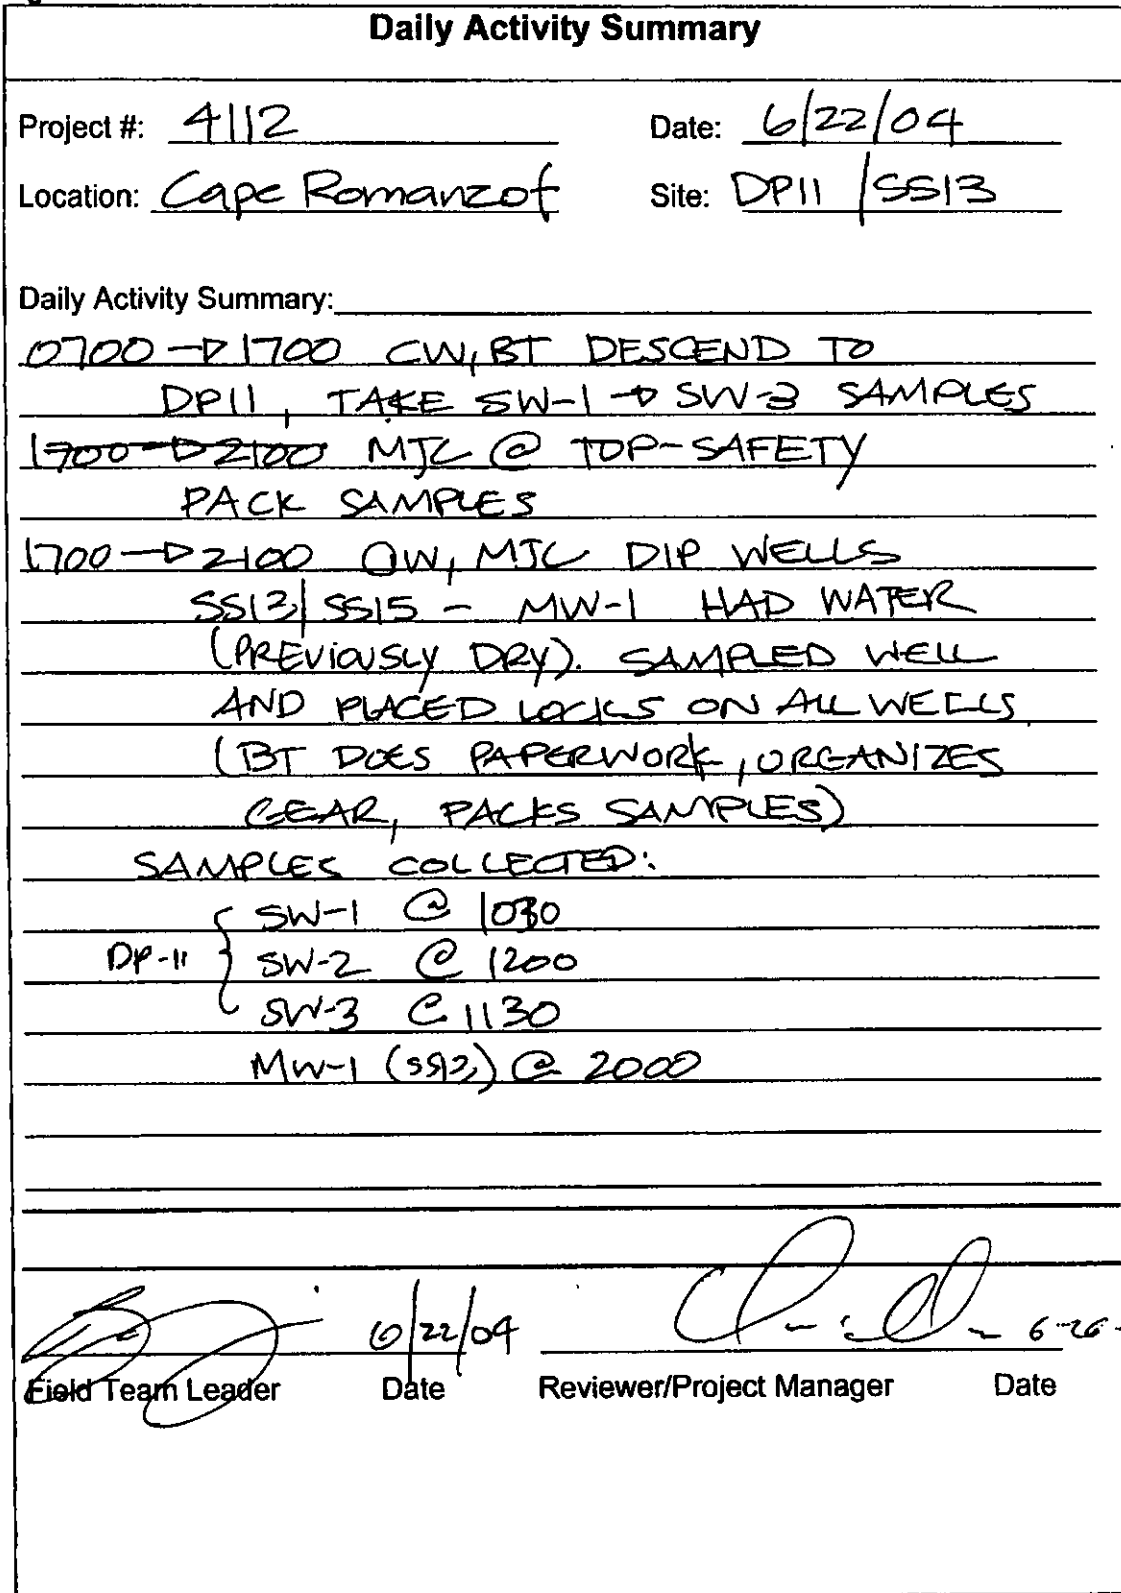 Daily Activity Summary
Project #: 4112 Date: 6/22/04
Location: Cape Romanzof Site: DP11 / SS13
Daily Activity Summary:
0700 → 1700 CW, BT DESCEND TO
DP11, TAKE SW-1 → SW-3 SAMPLES
1700 → 2100 MJC @ TOP-SAFETY
PACK SAMPLES
1700 → 2100 CW, MJC DIP WELLS
SS13/SS15 - MW-1 HAD WATER
(PREVIOUSLY DRY). SAMPLED WELL
AND PLACED LOCKS ON ALL WELLS
(BT DOES PAPERWORK, ORGANIZES
GEAR, PACKS SAMPLES)
SAMPLES COLLECTED:
SW-1 @ 1030
DP-11 { SW-2 @ 1200
SW-3 @ 1130
MW-1 (SS13) @ 2000
6/22/04 6-26-
Field Team Leader Date Reviewer/Project Manager Date